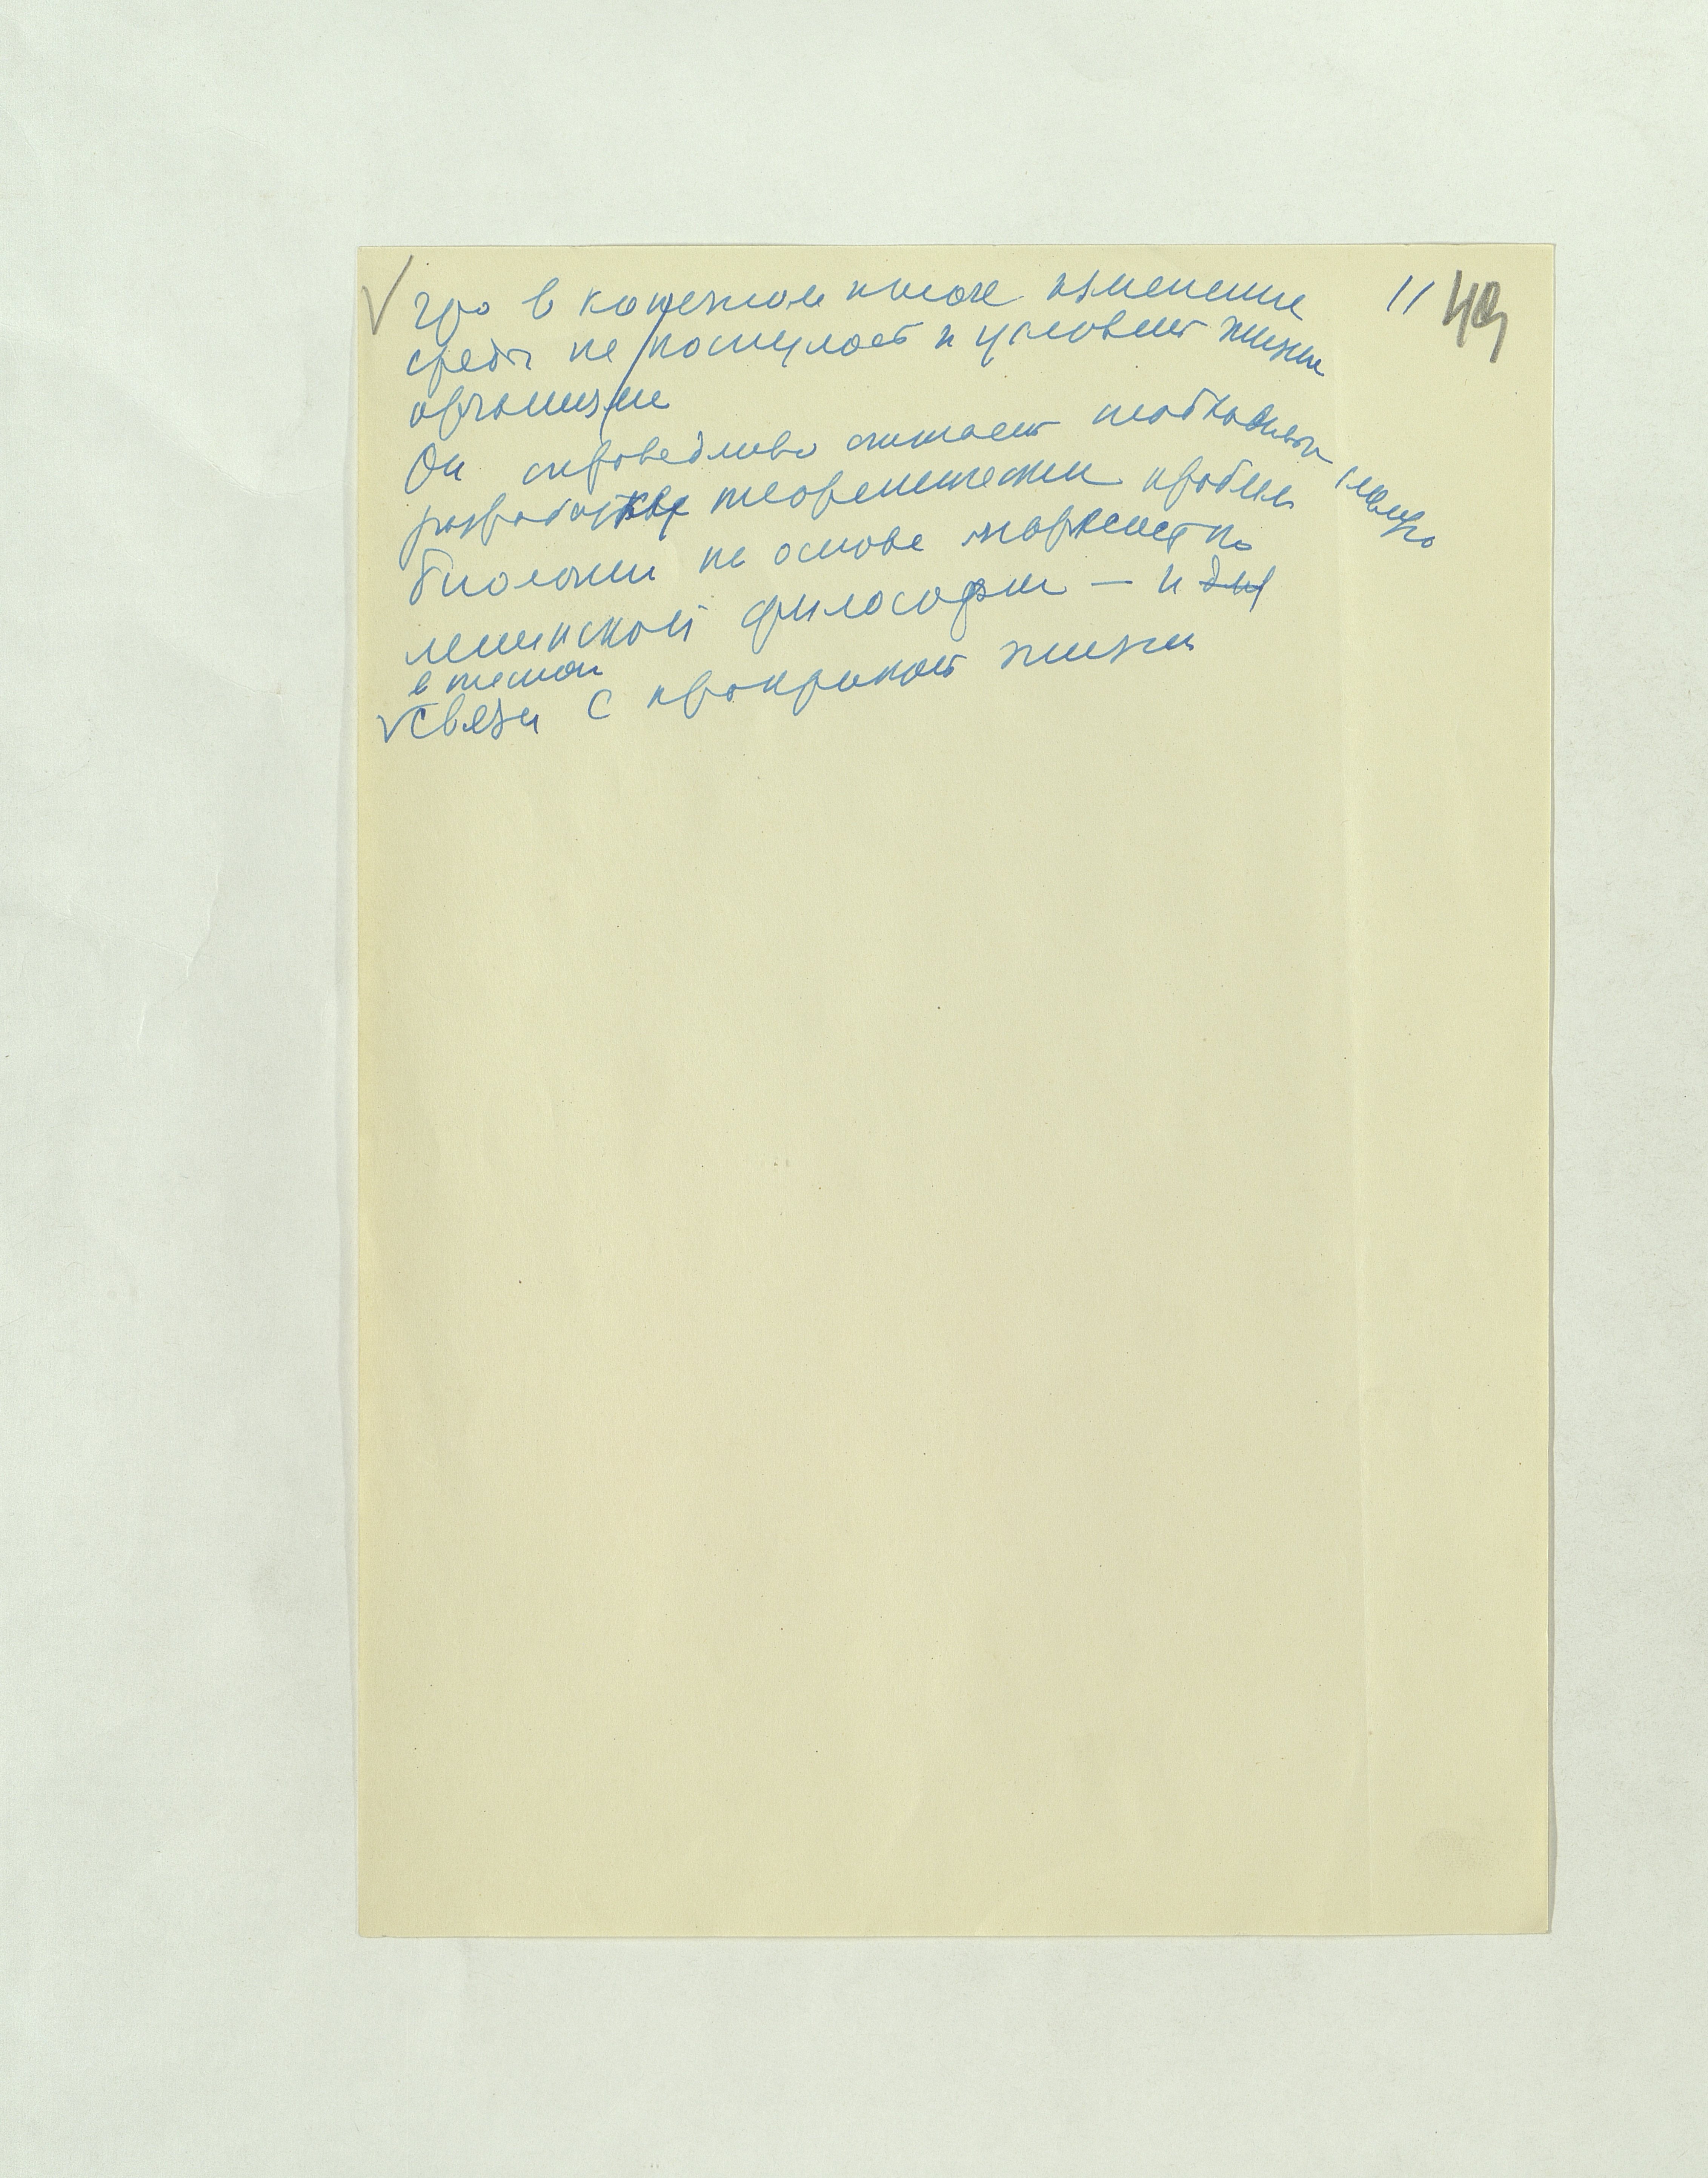 11 49
что в конечном итоге изменение
среды не поступает и условия жизни
организме
Он справедливо считает необходимым
разработку теоретических проблем
биологии на основе марксистко
ленинской философии — и для
в тесной
связи с практикой жизни